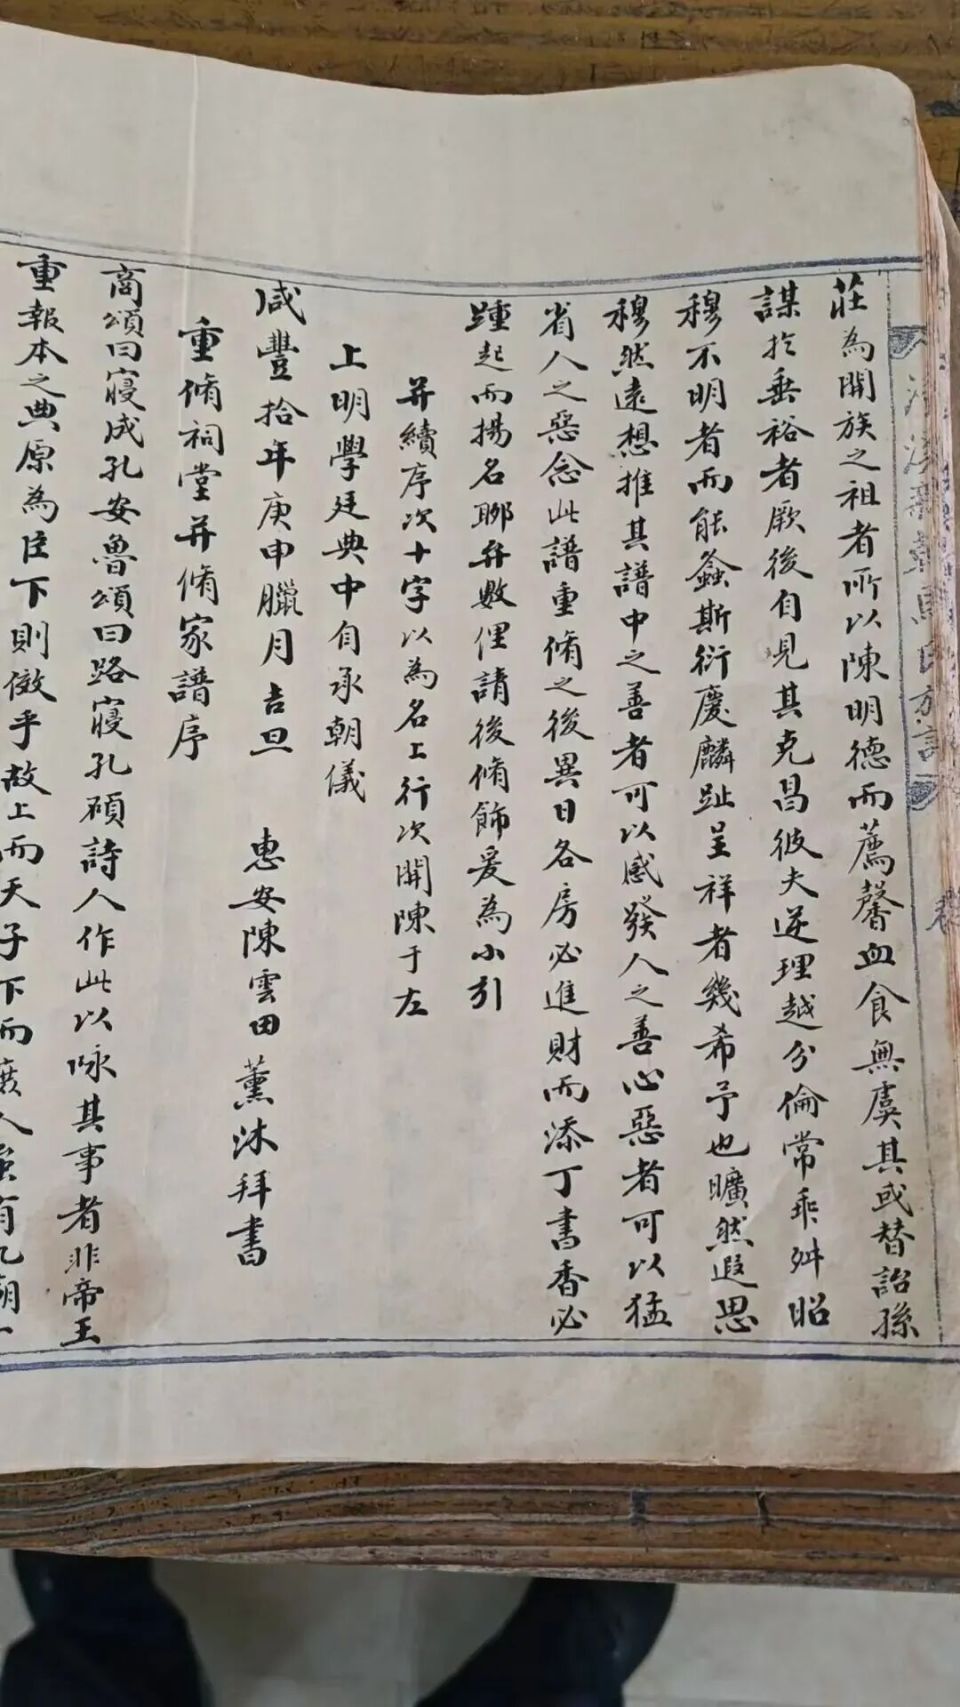 莊為開族之祖者所以陳明德而薦馨血食無虞其或替詒孫
謀於垂裕者厥後自見其克昌彼夫逆理越分倫常乖舛昭
穆不明者而能螽斯衍慶麟趾呈祥者幾希予也曠然遐思
穆然遠想推其譜中之善者可以感發人之善心惡者可以猛
省人之惡念此譜重脩之後異日各房必進財而添丁書香必
踵起而揚名聊弁數俚請後脩飾爰為小引
并續序次十字以為名上行次開陳于左
上明學廷典中自承朝儀
咸豐拾年庚申臘月吉旦 惠安陳雲田薰沐拜書
重脩祠堂并脩家譜序
商頌曰寢成孔安魯頌曰路寢孔碩詩人作此以咏其事者非帝王
重報本之典原為臣下則傚乎故上而天子下而庶人